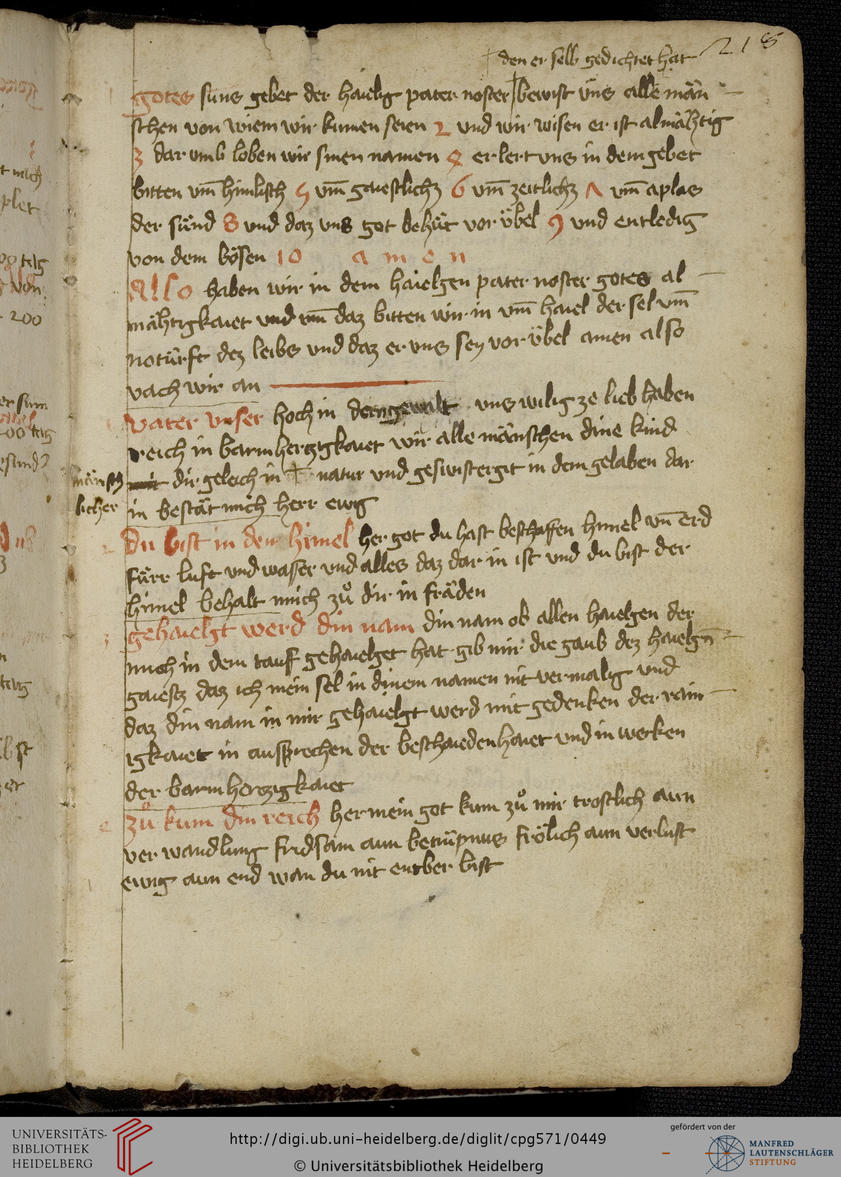 den er selb gedichtet hat
218
gotes suns gebet der hailig pater noster bewist uns alle män
schen von wiem wir kumen seien 2 und wir wisen er ist almähtig
3 dar umb loben wir sinen namen 4 er lert uns in dem gebet
bitten um himlisch 5 um gaiestlichz 6 um zeitlichz 7 um aplas
der sünd 8 und daz uns got behüt vor übel 9 und entledig
von dem bösen 10 amen
Also haben wir in dem haielgen pater noster gotes al
mähtigkaiet und um daz bitten wir in um haiel der sel um
notürft dez leibs und daz er uns sey vor übel amen also
vach wir an
Vater unser hoch in dem gewalt uns wilig ze lieb haben
reich in barmherzigkaiet wir alle mänschen dine kind
mänsch
licher
dir geleich in natur und geswistergit in dem gelaben dar
in bestät mich herr ewig
2 Du bist in dem himel her got du hast beschaffen himel un erd
fürr luft und wasser und alles daz dar in ist und du bist der
himel behalt mich zů dir in fräden
3 gehaielgt werd din nam din nam ob allen haielgen der
mich in dem tauf gehaielget hat gib mir die gaub dez haielgn
gaiestz daz ich mein sel in dinem namen nit vermalig und
daz din nam in mir gehaielgt werd mit gedenken der rain
igkaiet in aussprechen der beschaiedenhaiet und in werken
der barmherzigkaiet
zů kum din reich her mein got kum zů mir trostlich aun
verwandlung fridsam aun betrüpnus frölich aun verlust
ewig aun end wan du nit entber bist
UNIVERSITÄTS-
BIBLIOTHEK
HEIDELBERG
http://digi.ub.uni-heidelberg.de/diglit/cpg571/0449
© Universitätsbibliothek Heidelberg
gefördert von der
MANFRED
LAUTENSCHLÄGER
STIFTUNG